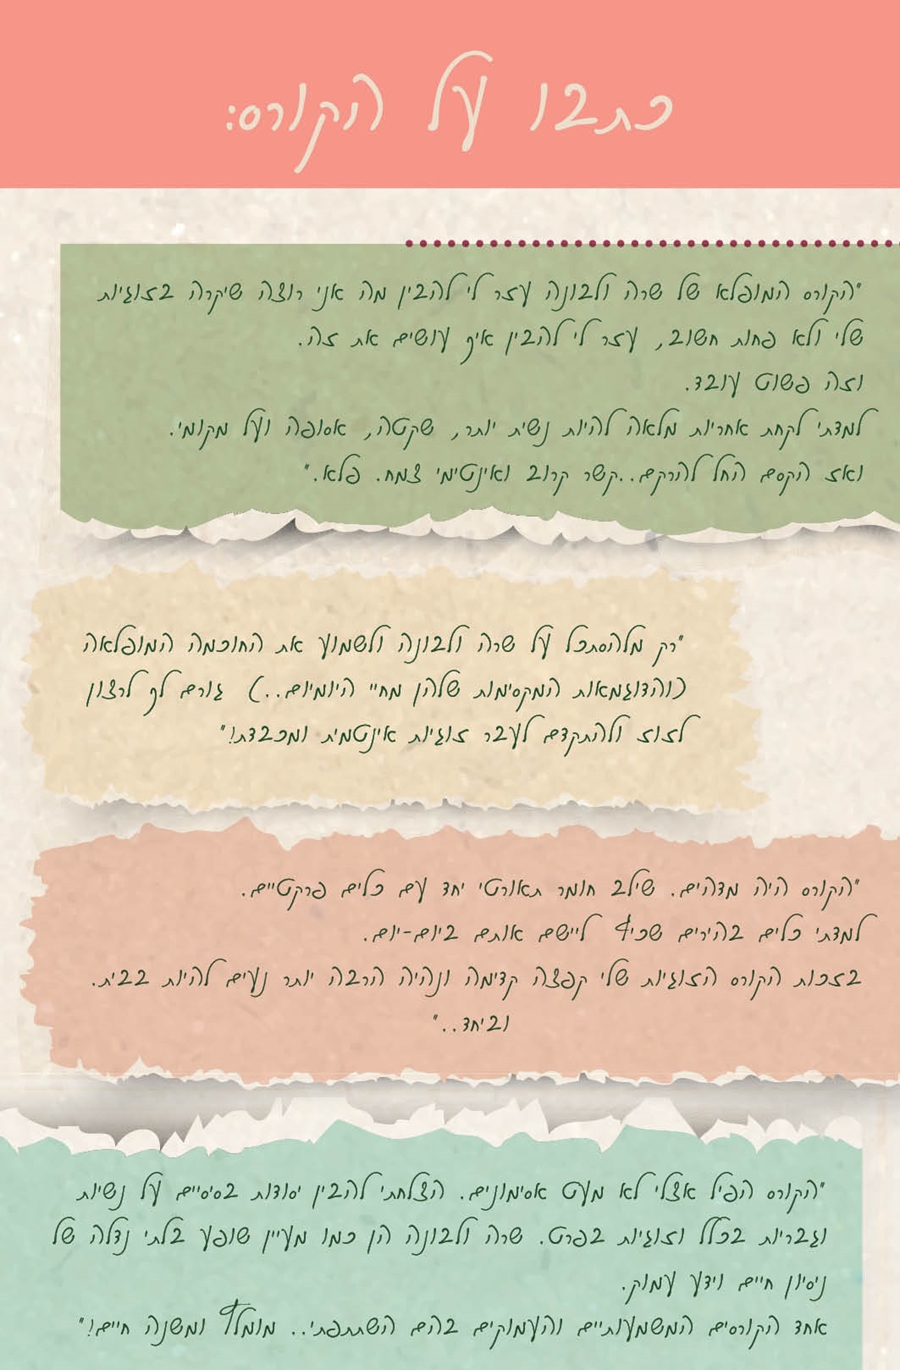 כתבו על הקורס:
"הקורס המופלא של שרה ולבונה עזר לי להבין מה אני רוצה שיקרה בזוגיות
שלי ולא פחות חשוב, עזר לי להבין איך עושים את זה.
וזה פשוט עובד.
למדתי לקחת אחריות מלאה להיות נשית יותר, שקטה, אסופה ועל מקומי.
ואז הקסם החל להרקם..קשר קרוב ואינטימי צמח. פלא."
"רק מלהסתכל על שרה ולבונה ולשמוע את החוכמה המופלאה
(והדוגמאות המקסימות שלהן מחיי היומיום..) גורם לך לרצון
לזוז ולהתקדם לעבר זוגיות אינטמית ומכבדת!"
"הקורס היה מדהים. שילב חומר תאורטי יחד עם כלים פרקטיים.
למדתי כלים בהירים שכיף ליישם אותם ביום-יום.
בזכות הקורס הזוגיות שלי קפצה קדימה ונהיה הרבה יותר נעים להיות בבית.
וביחד.."
"הקורס הפיל אצלי לא מעט אסימונים. הצלחתי להבין יסודות בסיסיים על נשיות
וגבריות בכלל וזוגיות בפרט. שרה ולבונה הן כמו מעיין שופע בלתי נדלה של
ניסיון חיים וידע עמוק.
אחד הקורסים המשמעותיים והעמוקים בהם השתתפתי.. מומלץ ומשנה חיים!"